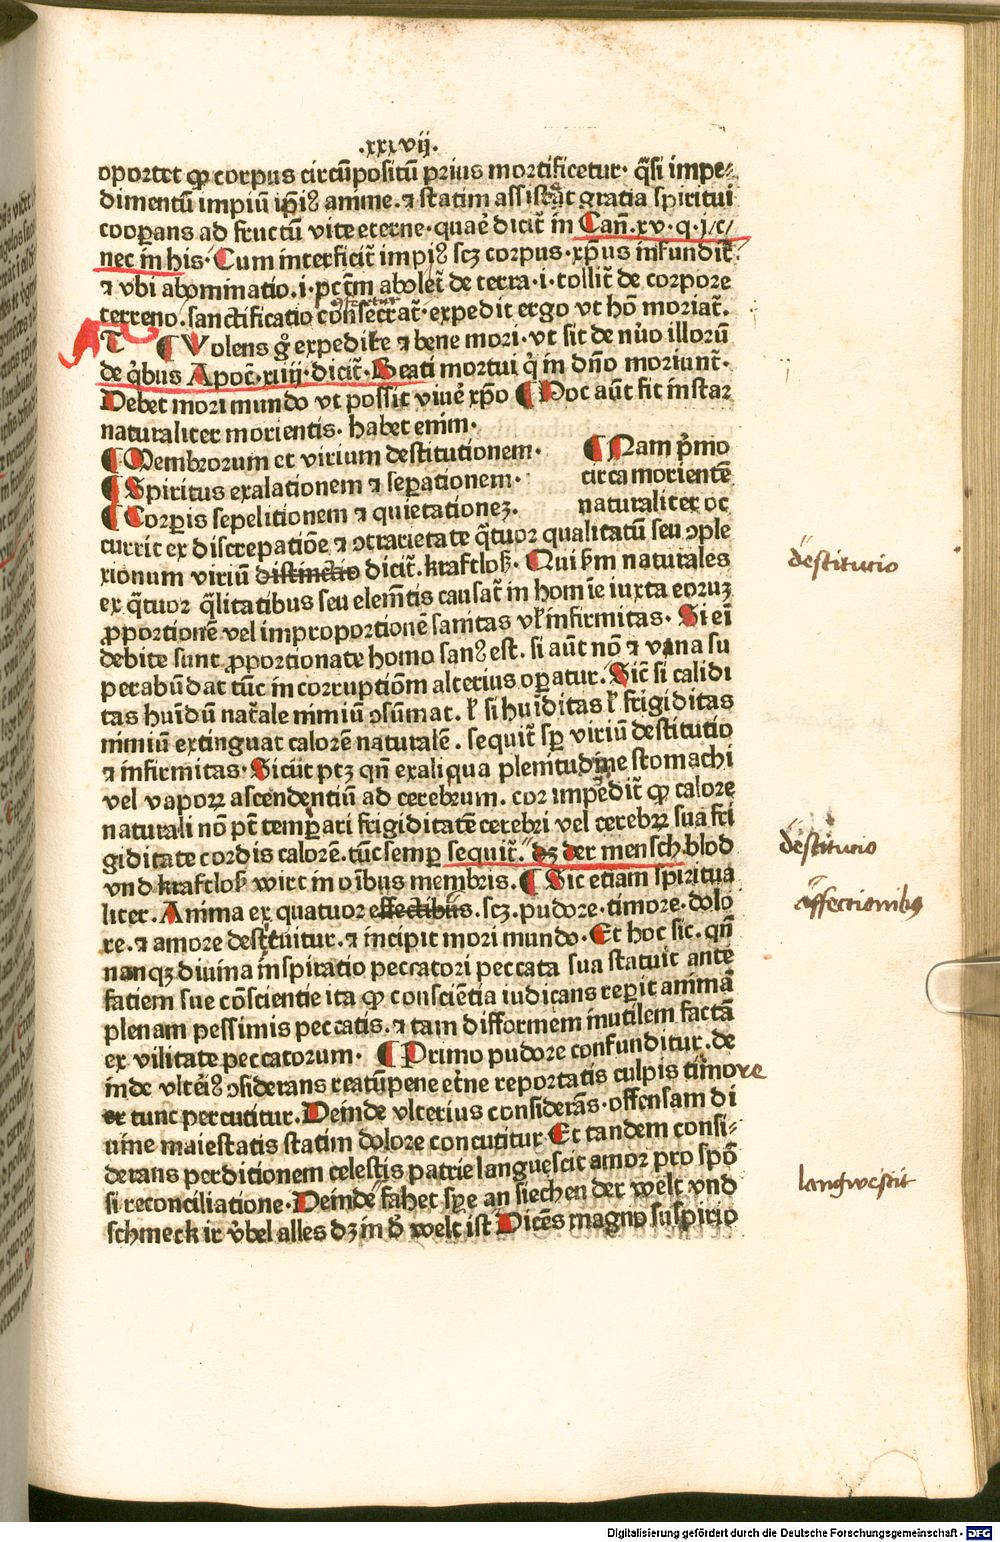 .xxxvij.
oportet ꝙ corpus circūpositū prius mortificetur· q̄si impe⸗
dimentū impiū ip̄iꝰ anime. ⁊ statim assistāt gratia spiritui
cooꝑans ad fructū vite eterne· quaē dicit̄ in Cañ.xv·q·j/c/
nec in his· Cum interficit̄ impiꝰ scꝫ corpus· xp̄us infundit̄.
⁊ vbi abominatio.i·pctm̄ abolet̄ de terra·i·tollit̄ de corpore
terreno. sanctificatio consecrat̄· expedit ergo vt hō moriat̄.
T ¶ Volens g̊ expedite ⁊ bene mori· vt sit de nūo illorū
de q̇bus Apoc̄·xiiij·dicit̄· Beati mortui q̇ in dn̄o moriunt̄·
Debet mori mundo vt possit viuē xp̄o ¶ Hoc aūt fit instar
naturaliter morientis· habet enim·
¶ Membrorum et virium destitutionem·
¶ Spiritus exalationem ⁊ seꝑationem·
¶ Corꝑis sepelitionem ⁊ quietationeꝫ.
¶ Nam p̄mo
circa morientē
naturaliter oc
currit ex discrepatiōe ⁊ ↄtrarietate q̄tuor qualitatū seu ↄple
xionum viriū distinctio dicit̄. kraftloß· Qui ẜm naturales
ex q̄tuor q̄litatibus seu elemētis causat̄ in homīe iuxta eoruꝫ
ꝓportionē vel improportionē sanitas vł infirmitas· Si eī
debite sunt ꝓportionate homo sanꝰ est. si aūt nō ⁊ vna su
perabūdat tūc in corruptiōm alterius oꝑatur. Sic̄ si calidi
tas hūidū nat̄ale nimiū ↄsūmat. ł si hūiditas ł frigiditas
nimiū extinguat calorē naturalē. sequit̄ sꝑ viriū destitutio
⁊ infirmitas· Sicut ptꝫ qn̄ ex aliqua plenitudine stomachi
vel vaporꝝ ascendentiū ad cerebrum. cor impedit̄ ꝙ calore
naturali nō pt̄ temꝑari frigiditatē cerebri vel cerebrꝝ sua fri
giditate cordis calorē. tūc semꝑ sequit̄. dꝫ der mensch blod
vnd kraftloß wirt in oībus membris. ¶ Sic etiam spiritua
liter. Anima ex quatuor effectibus. scꝫ. pudore· timore· dolo
re. ⁊ amore destituitur. ⁊ incipit mori mundo· Et hoc sic. qn̄
nanqꝫ diuina inspiratio peccatori peccata sua statuit ante
fatiem sue cōscientie ita ꝙ conscīetia iudicans reꝑit animā
plenam pessimis peccatis. ⁊ tam difformem inutilem factā
ex vilitate peccatorum· ¶ Primo pudore confunditur. de
inde vlteīꝰ ↄsiderans reatū pene et̄ne reportatis culpis timore
et tunc percutitur. Deinde vlterius considerās· offensam di
uine maiestatis statim dolore concutitur Et tandem consi⸗
derans perditionem celestis patrie languescit amor pro spō
si reconciliatione· Deinde fahet sye an siechen der welt vnd
schmeck ir v̊bel alles dꝫ in d̓ welt ist Dicēs magno suspirio
destitutio
destitutio
affectionibꝰ
langwescit
Digitalisierung gefördert durch die Deutsche Forschungsgemeinschaft · DFG